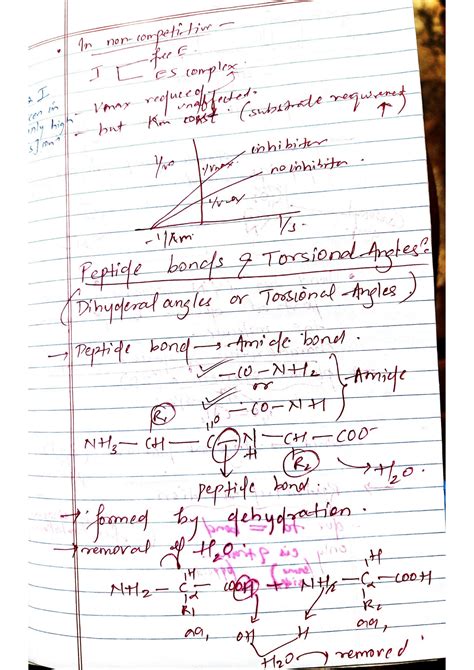 In non-competitive –
I
free E.
ES complex
Vmax reduced
unaffected.
but Km (substrate required ↑)
1/v₀
inhibitor
no inhibitor
1/Vmax
1/Vmax
-1/Km
1/S
Peptide bonds & Torsional Angles:
(Dihyderal angles or Torsional Angles)
→ Peptide bond → Amide bond.
–CO–NH2
or
–CO–NH
Amide
R1
O
NH3 – CH – C – N – CH – COO-
H
R2
→ H2O.
peptide bond.
→ formed by dehydration.
→ removal of H2O.
H
H
NH2 – Cα – COOH + NH2 – Cα – COOH
R1
R2
aa1
OH
H
aa1
H2O → removed